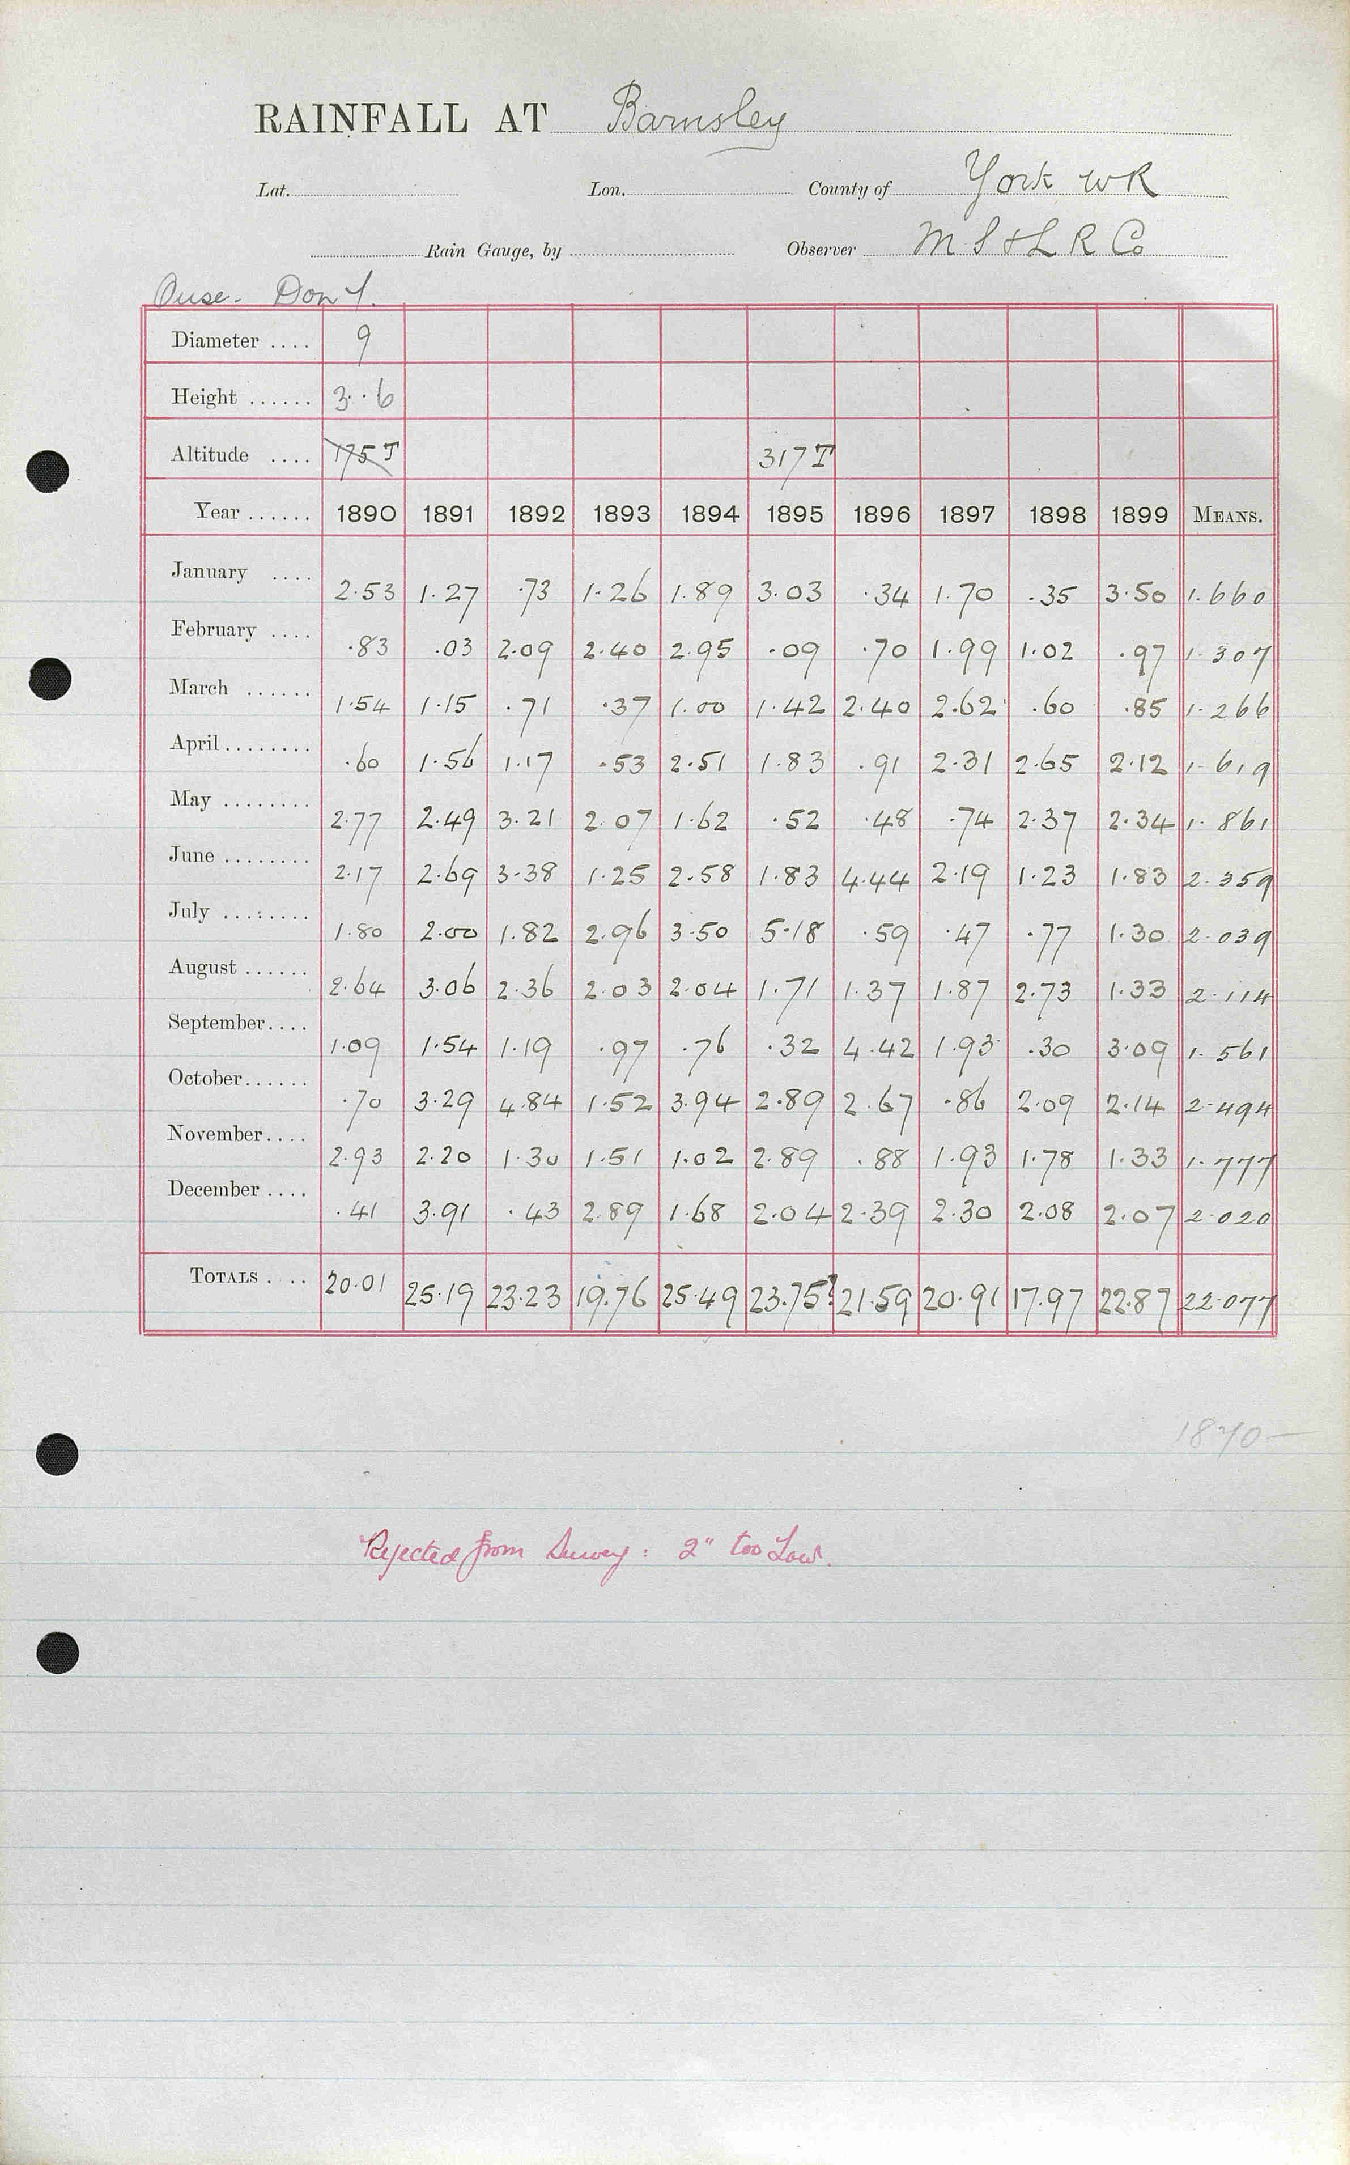 RAINFALL AT Barnsley
Lat. Lon. County of York WR
Rain Gauge, by Observer M S & L R Co
Ouse. Don 1.
Diameter .... 9
Height ...... 3..6
Altitude .... 175 T 317 T
Year ...... 1890 1891 1892 1893 1894 1895 1896 1897 1898 1899 MEANS.
January .... 2.53 1.27 .73 1.26 1.89 3.03 .34 1.70 .35 3.50 1.660
February .... .83 .03 2.09 2.40 2.95 .09 .70 1.99 1.02 .97 1.307
March ...... 1.54 1.15 .71 .37 1.00 1.42 2.40 2.62 .60 .85 1.266
April ........ .60 1.56 1.17 .53 2.51 1.83 .91 2.31 2.65 2.12 1.619
May ........ 2.77 2.49 3.21 2.07 1.62 .52 .48 .74 2.37 2.34 1.861
June ........ 2.17 2.69 3.38 1.25 2.58 1.83 4.44 2.19 1.23 1.83 2.359
July ........ 1.80 2.00 1.82 2.96 3.50 5.18 .59 .47 .77 1.30 2.039
August ...... 2.64 3.06 2.36 2.03 2.04 1.71 1.37 1.87 2.73 1.33 2.114
September.... 1.09 1.54 1.19 .97 .76 .32 4.42 1.93 .30 3.09 1.561
October...... .70 3.29 4.84 1.52 3.94 2.89 2.67 .86 2.09 2.14 2.494
November.... 2.93 2.20 1.30 1.51 1.02 2.89 .88 1.93 1.78 1.33 1.777
December .... .41 3.91 .43 2.89 1.68 2.04 2.39 2.30 2.08 2.07 2.020
TOTALS .... 20.01 25.19 23.23 19.76 25.49 23.75? 21.59 20.91 17.97 22.87 22.077
1870-
Rejected from Survey: 2" too Low.